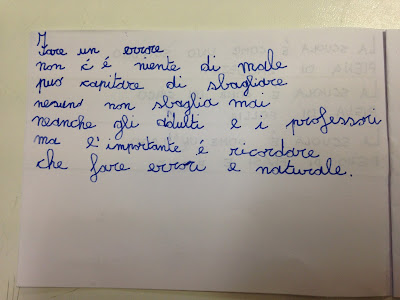 Fare un errore
non c'é niente di male
puo capitare di sbagliare
nesuno non sbaglia mai
neanche gli adulti e i professori
ma l'importante é ricordare
che fare errori e naturale.